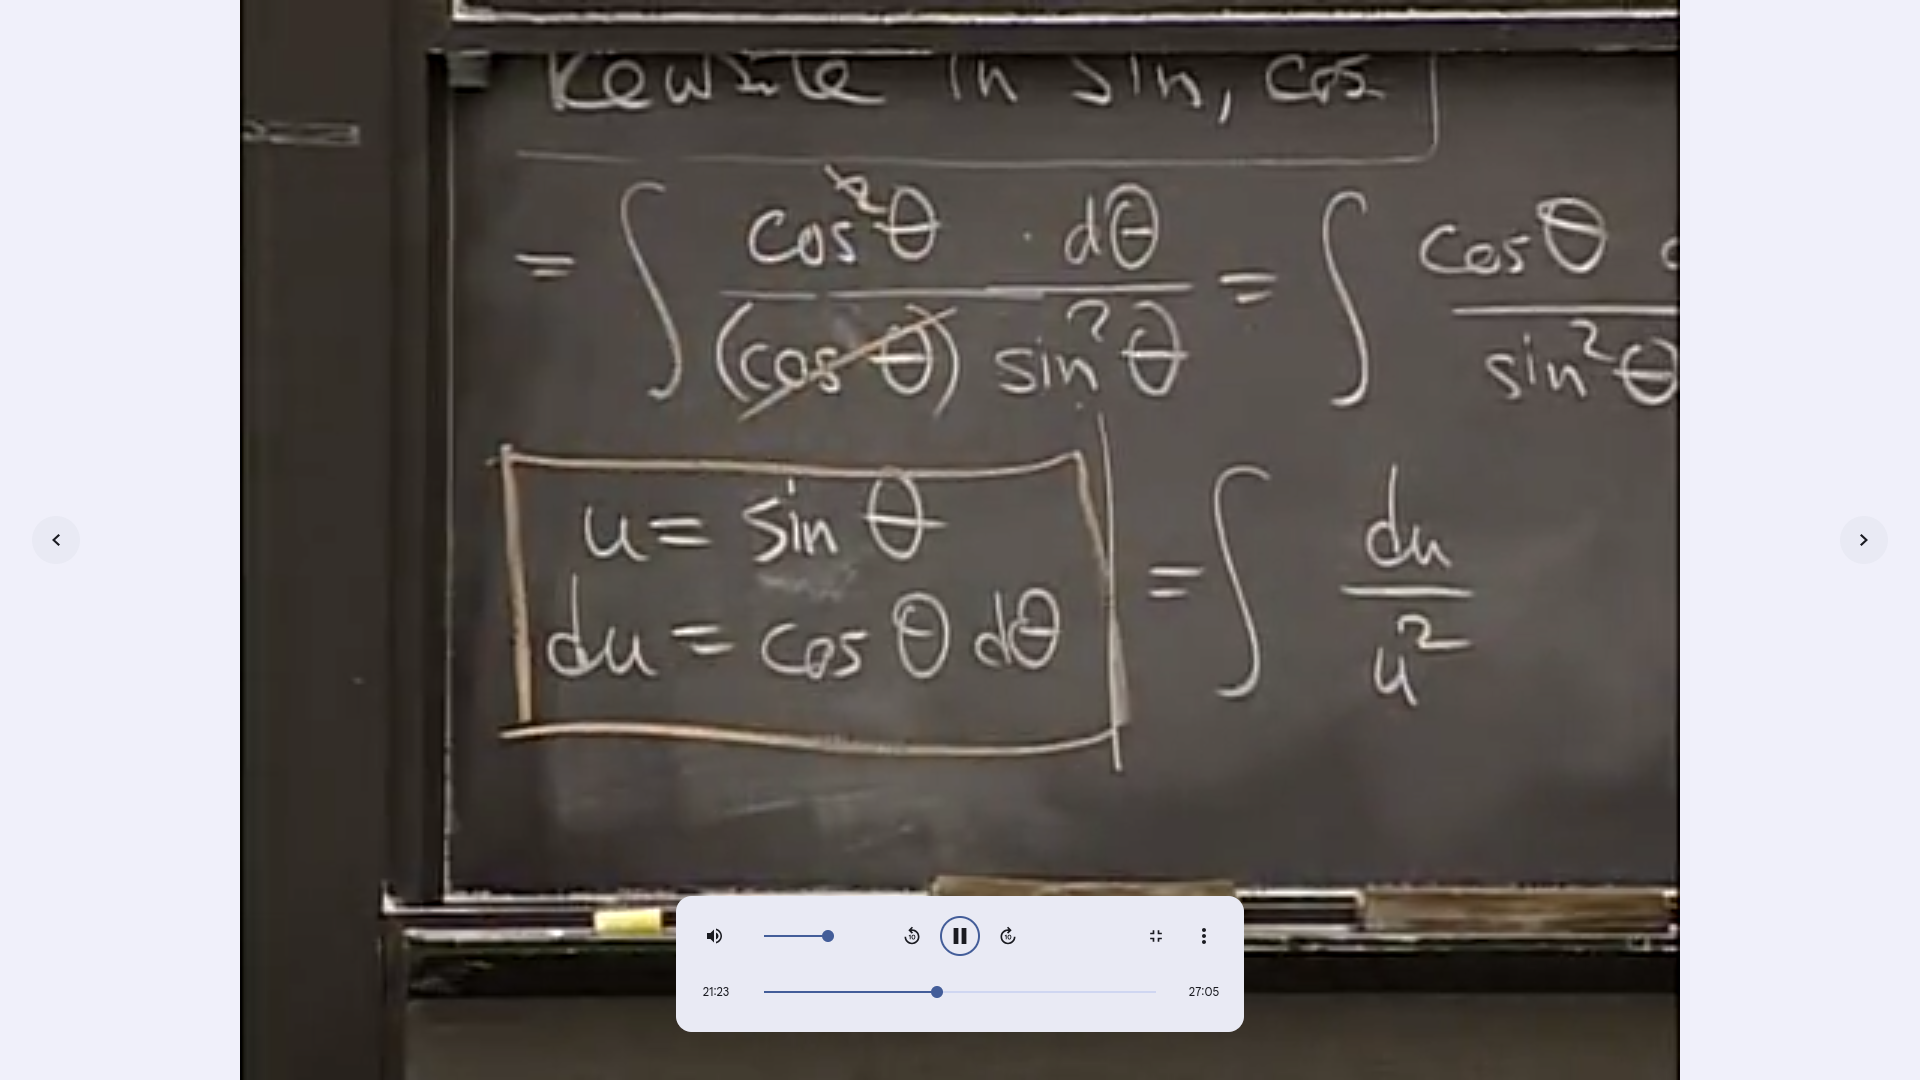 Rewrite in sin, cos
= ∫ cos²θ · dθ / (cos θ) sin²θ = ∫ cosθ / sin²θ
u = sin θ
du = cos θ dθ
= ∫ du / u²
21:23
27:05